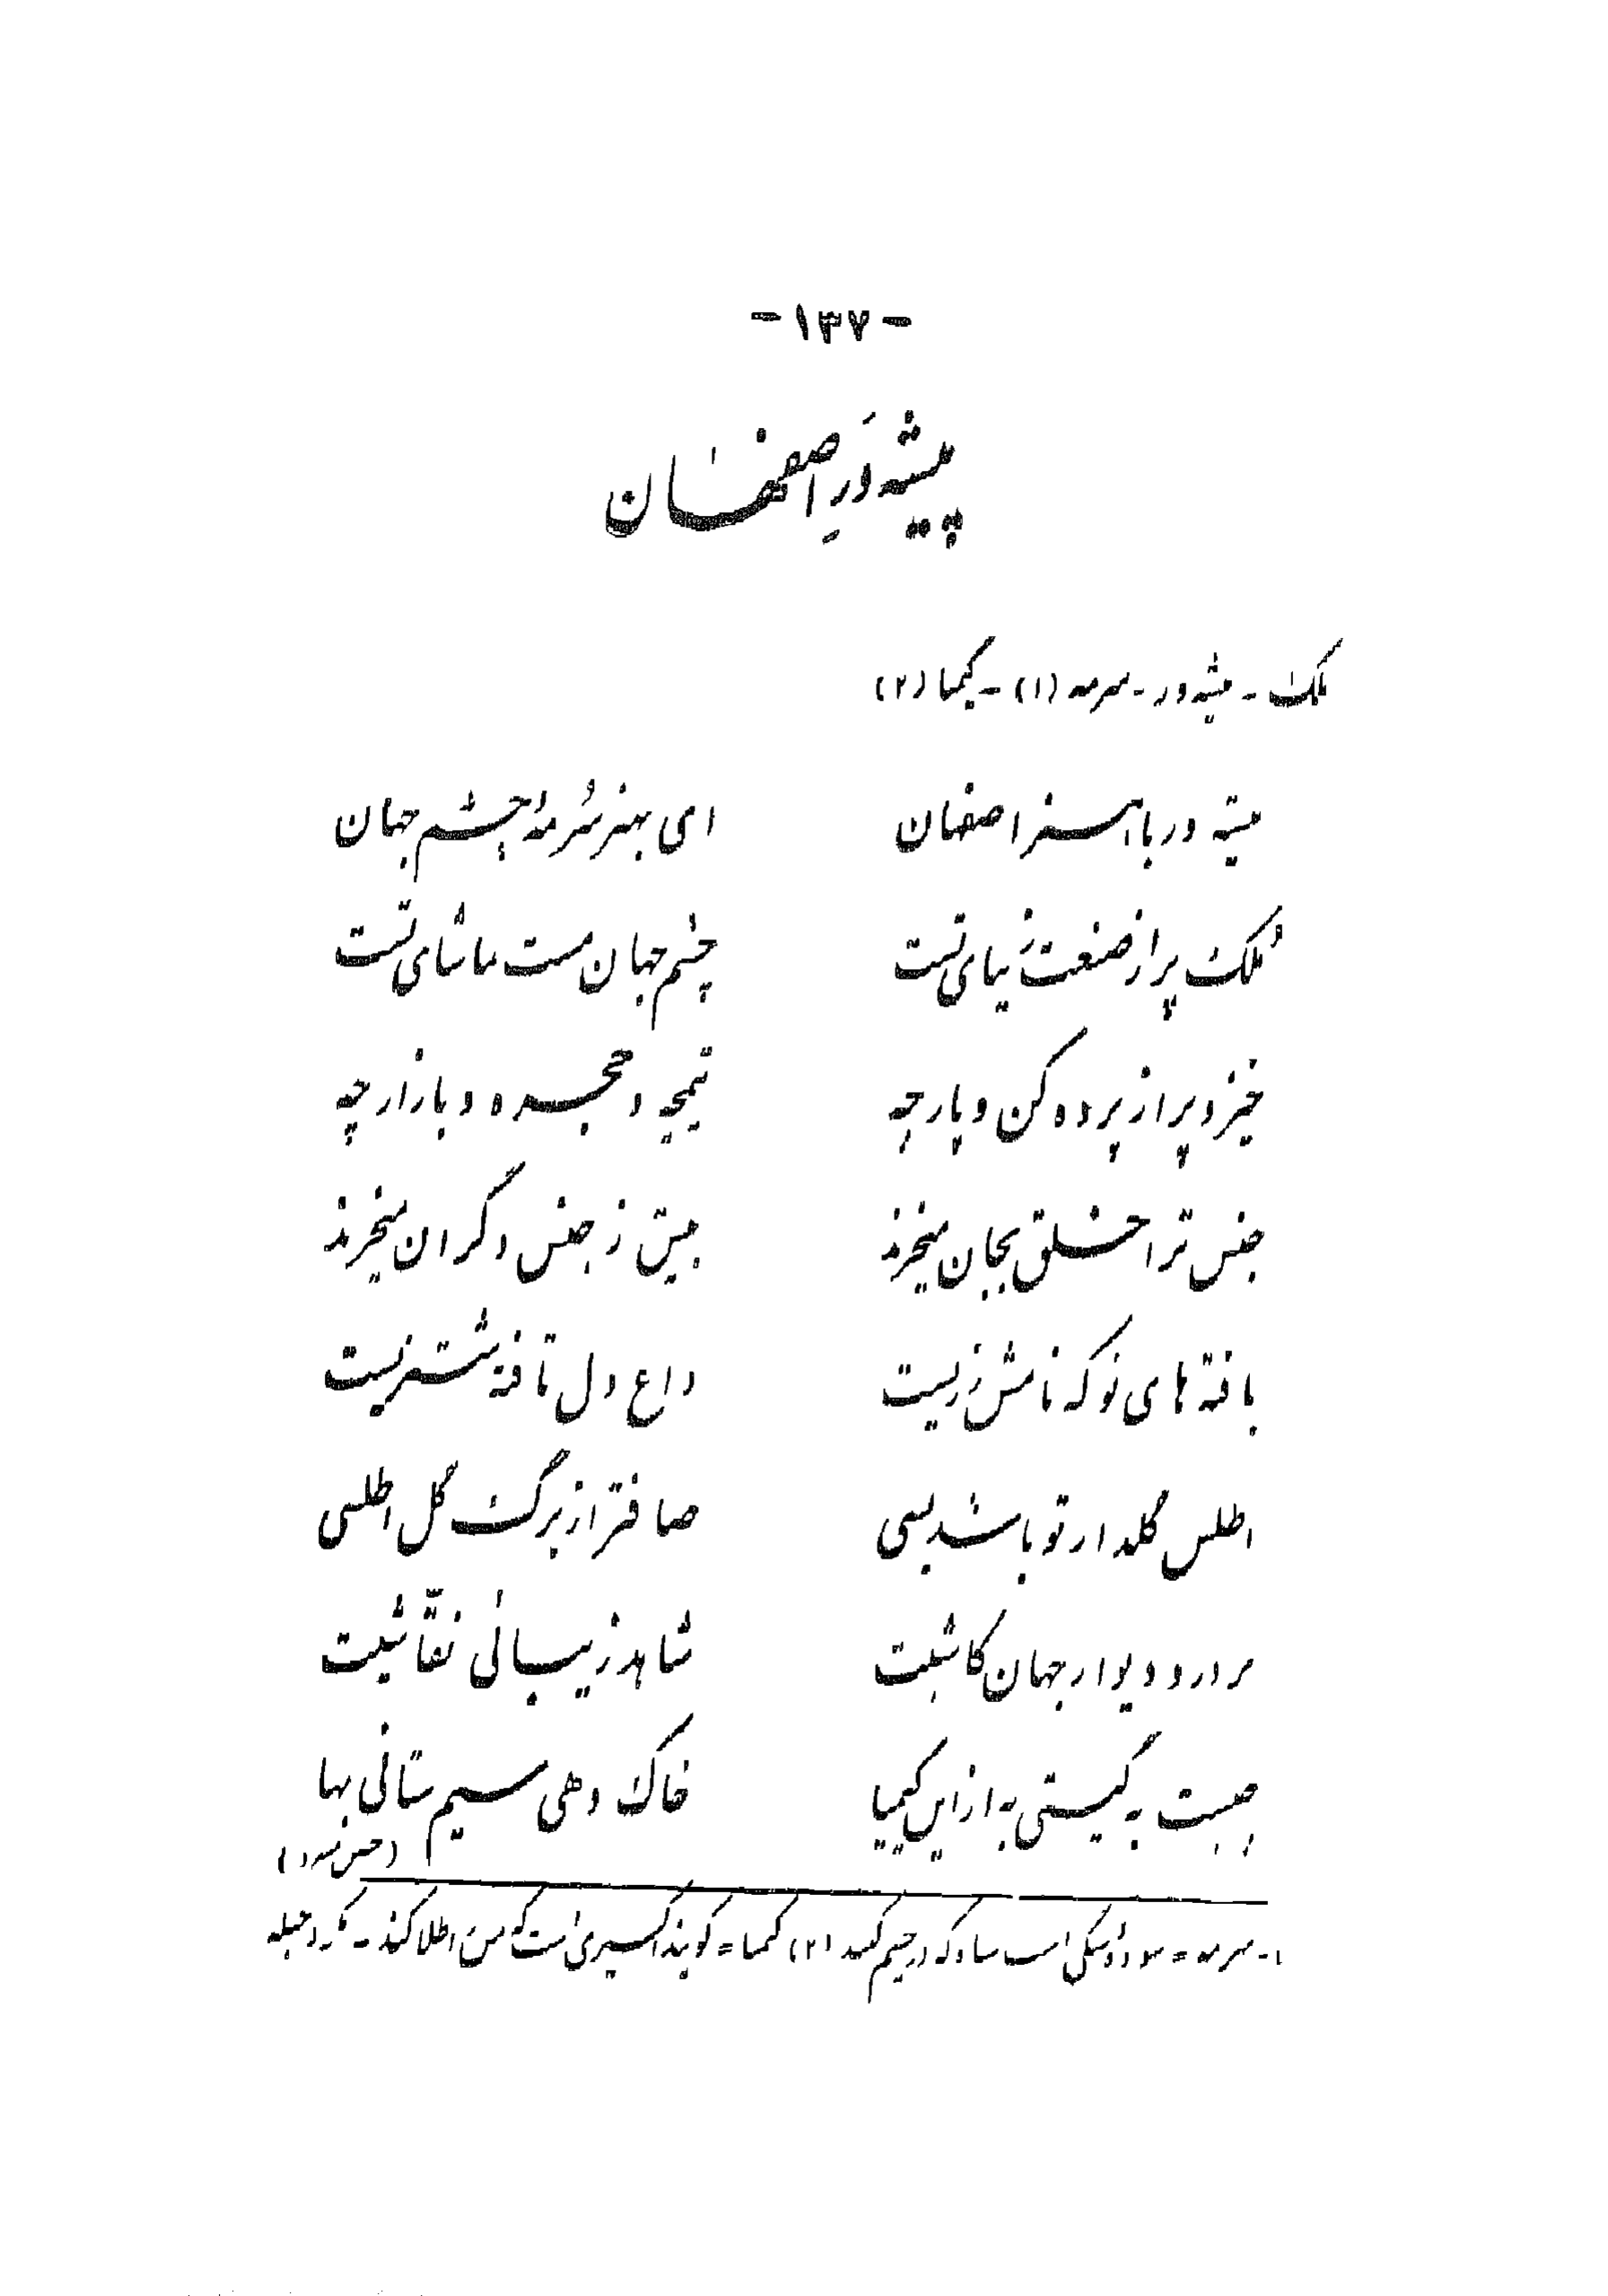 -۱۳۷-
پیشه‌وَرِ اصفهان
ملک - پیشه‌ور - سرمه (۱) - کیمیا (۲)
پیشه‌ور با هنر اصفهان    ای بهنر سُرمهٔ چشم جهان
مُلک پر از صنعت زیبای تست    چشم جهان مست تماشای تست
خیز و پر از پرده کن و پارچه    تیمچه و حجره و بازارچه
جنس ترا خلق بجان میخرند    بیش ز جنس دگران میخرند
بافته‌های نو که نامش زریست    داغ دل تافتهٔ ششتریست
اطلس گلدار تو باشد بسی    صافتر از برگ گل اطلسی
بر در و دیوار جهان کاشیت    شاهد زیبائی نقّاشیت
چیست به گیتی به از این کیمیا    خاک دهی سیم ستانی بها
۱- سرمه = سوده سنگی است سیاه که در چشم کشند (۲) کیمیا = گویند اکسیری است که مس را طلا کند - مکر و حیله